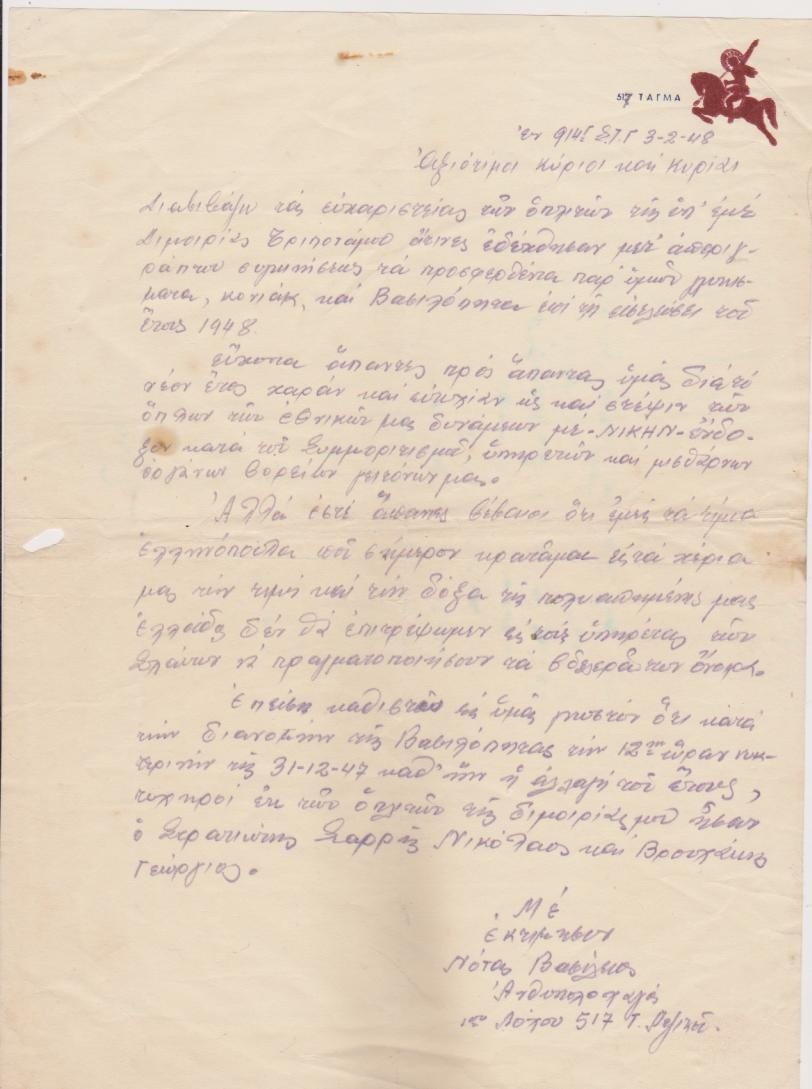 517 ΤΑΓΜΑ
Ἐν 914Γ Σ.Τ.Γ 3-2-48
Ἀξιότιμοι Κύριοι καί Κυρίαι
Διαβιβάζω τάς εὐχαριστείας τῶν ὁπλιτῶν τῆς ὑπ' ἐμέ
Διμοιρίας Τριποτάμου ἅτινες ἐδέχθησαν μετ' ἀπεριγ-
ράπτου συγκινήσεως τά προσφερθέντα παρ' ὑμῶν γλυκίσ-
ματα, κονιάκ, καί Βασιλόπητα ἐπί τῇ εἰσελεύσει τοῦ
ἔτους 1948.
εὔχονται ἅπαντες πρός ἅπαντας ὑμᾶς διά τό
νέον ἔτος χαράν καί εὐτυχίαν ὡς καί στέψιν τῶν
ὅπλων τῶν ἐθνικῶν μας δυνάμεων μέ-ΝΙΚΗΝ-ἔνδο-
ξον κατά τοῦ Συμμοριτισμοῦ, ὑπηρετῶν καί μισθάρνων
ὀργάνων βορείων γειτόνων μας.
Ἀλλά ἐστέ ἅπαντες βέβαιοι ὅτι ἐμεῖς τά τίμια
ἑλληνόπουλα πού σήμερον κρατᾶμαι εἰς τά χέρια
μας τήν τιμή καί τήν δόξα τῆς πολυαγαπημένης μας
Ἑλλάδος δέν θά ἐπιτρέψωμεν εἰς τούς ὑπηρέτας τῶν
Σλάυων νά πραγματοποιήσουν τά βδελερά των ὄνειρα.
ἐπείσης καθιστῶ εἰς ὑμᾶς γνωστόν ὅτι κατά
τήν διανομήν τῆς Βασιλόπητας τήν 12ην ὥραν νυκ-
τερινήν τῆς 31-12-47 καθ' ἥν ἡ ἀλλαγή τοῦ ἔτους,
τυχηροί ἐκ τῶν ὁπλιτῶν τῆς διμοιρίας μου ἦσαν
ὁ Στρατιώτης Σαρρῆς Νικόλαος καί
Γεώργιος.
Μέ
ἐκτίμησιν
Νότας Βασίλειος
Ἀνθυπολοχαγός
Λόχου 517 Τ. Πεζικοῦ.